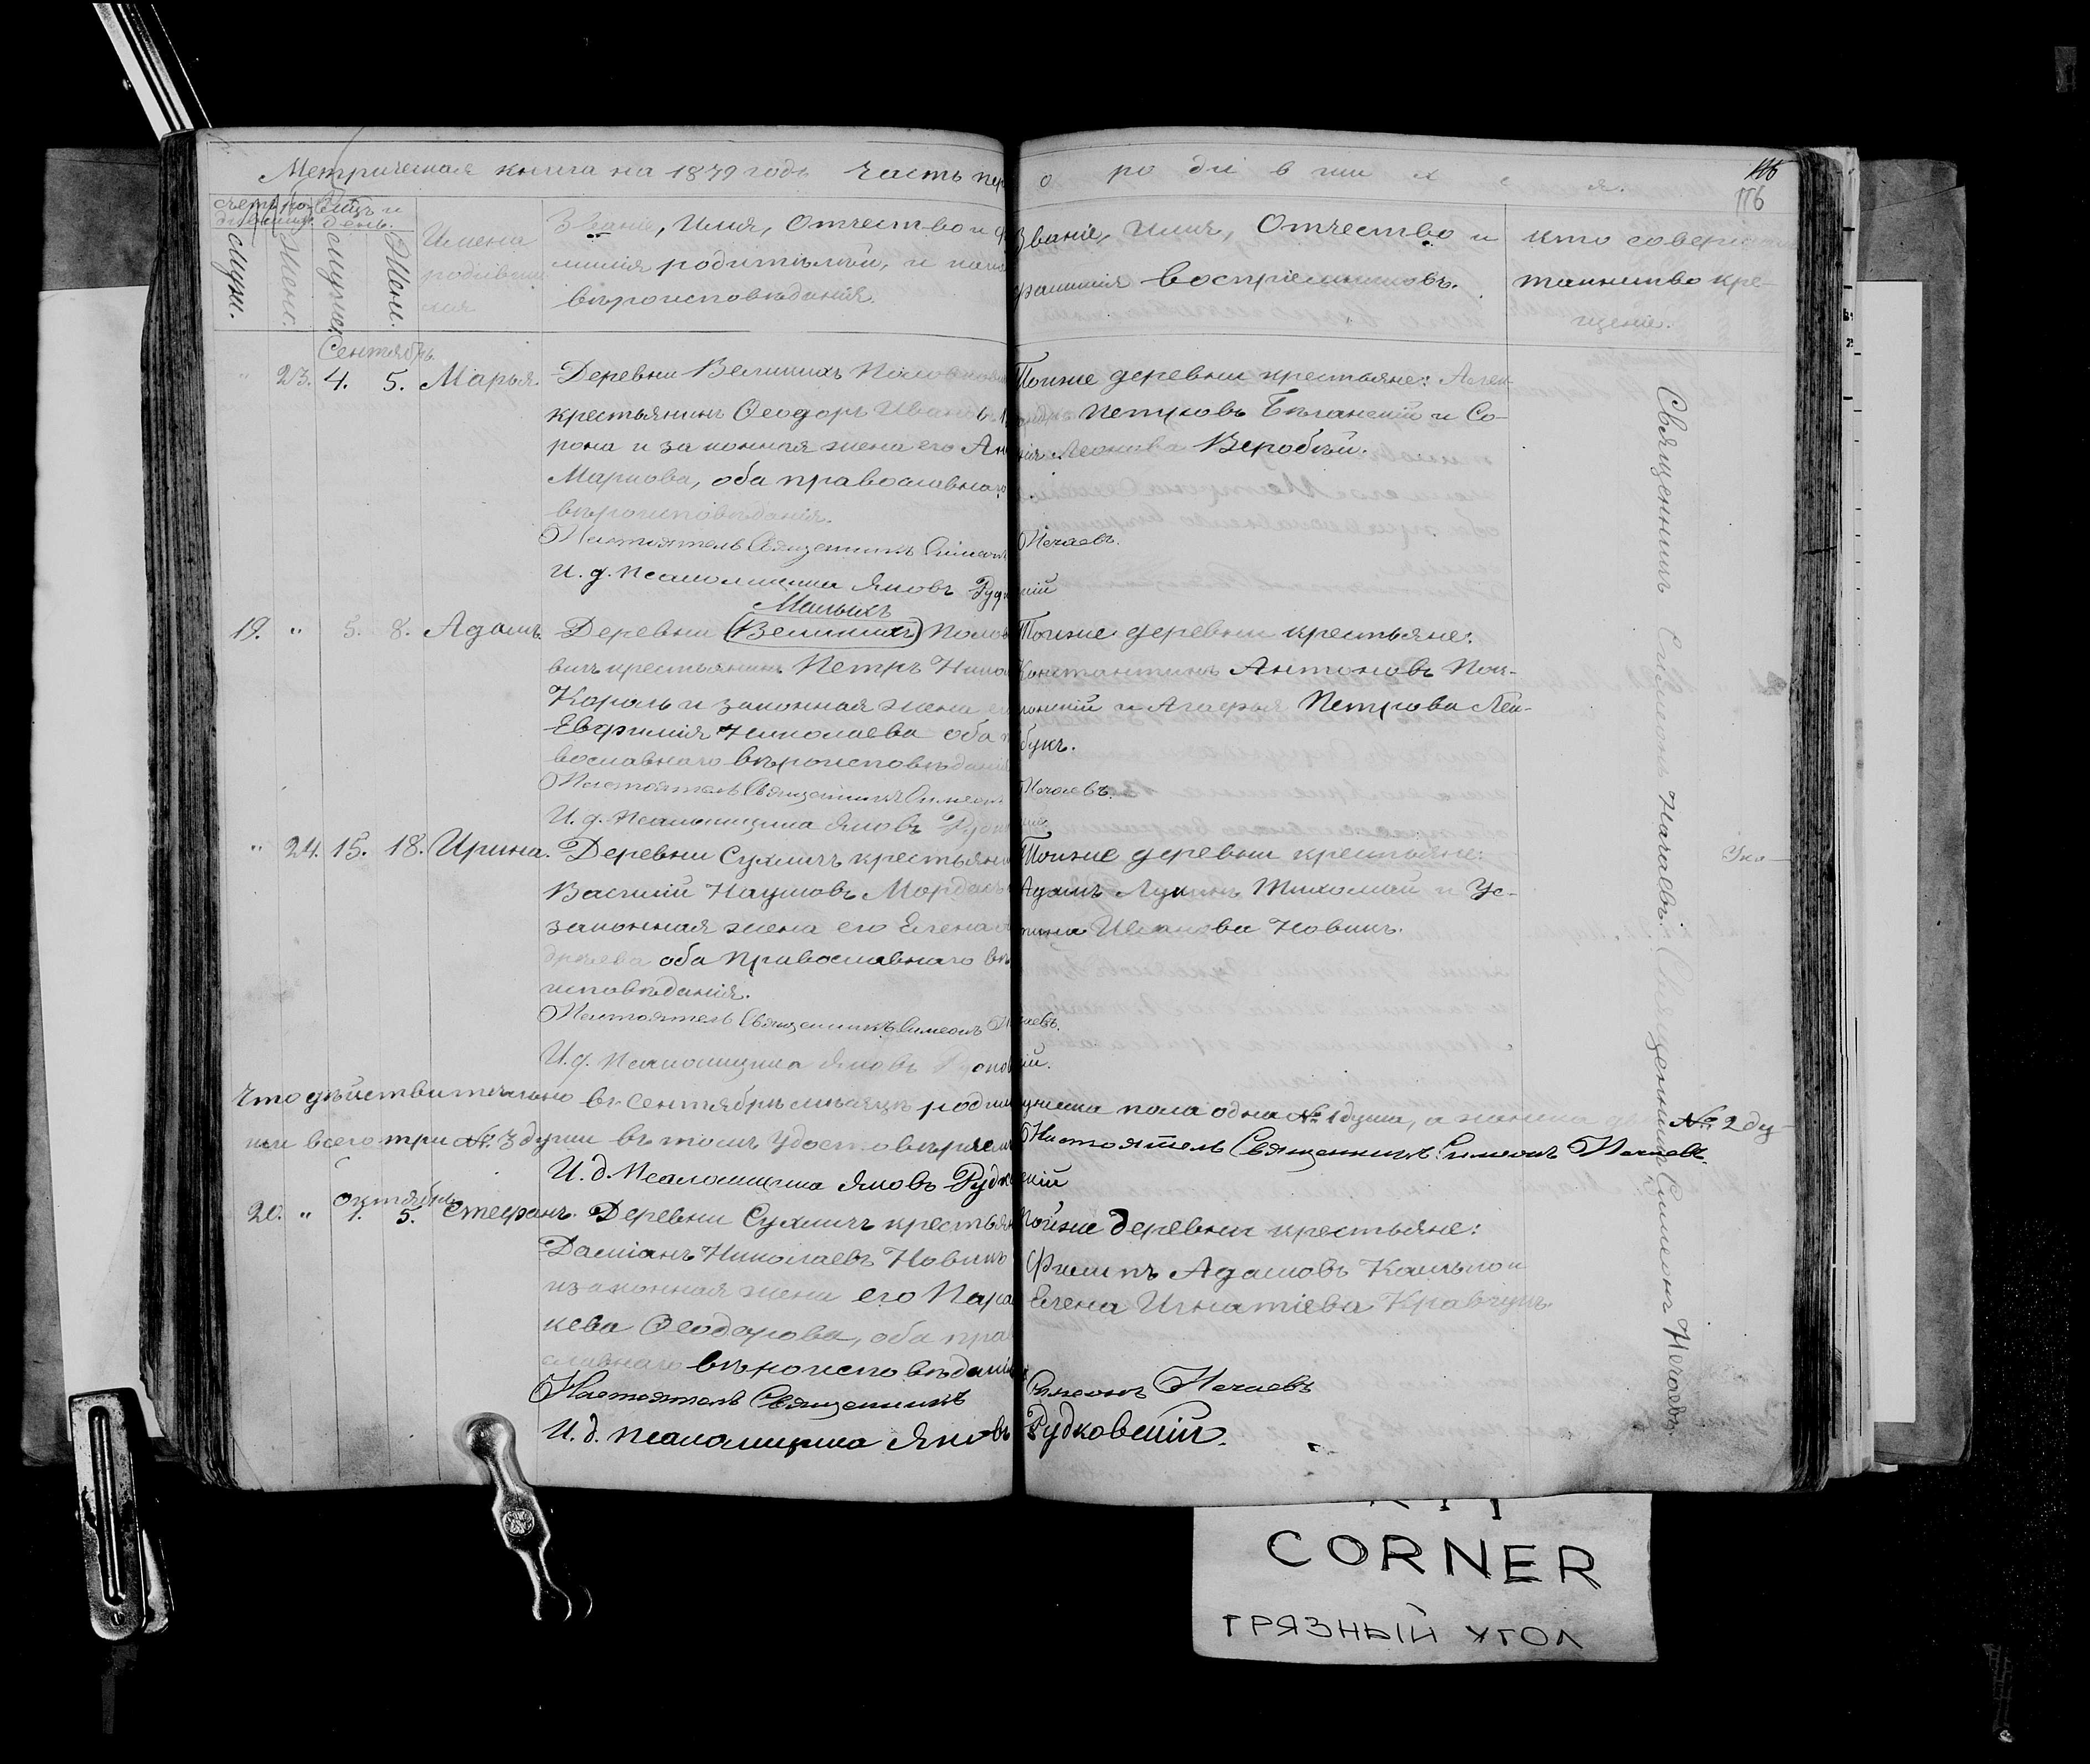 Метрическая книга на 1879 годъ часть пер
о родившихся.
116
116
Счетъ родившихся. Мѣсяцъ и день.
Муж. Женс. Мужс. Жен.
Имена родившихся
Званіе, Имя, Отчество и фа
милія родителей, и како
вѣроисповѣданія.
Званіе, Имя, Отчество и
фамилія воспріемниковъ.
Кто соверша
таинство кре-
щенія.
Сентябрь
" 23. 4. 5. Марья. Деревни Великихъ
крестьянинъ Ѳеодоръ Ивановъ
рона и законная жена его Ан
Маркова, оба православнаго
вѣроисповѣданія.
Настоятель Священникъ Симеонъ Нечаевъ.
И. д. Псаломщика Яковъ Рудковскій
Тойже деревни крестьяне: Алек-
Петровъ Бѣганскій и Со-
Леонова Веробѣй.
Малыхъ
19. " 5. 8. Адамъ Деревни (Великихъ) Полов
вичъ крестьянинъ Петръ
Король и законная жена его
Евфимія Николаева оба п
вославнаго вѣроисповѣданія
Настоятель Священникъ Симеонъ Нечаевъ.
И. д. Псаломщика Яковъ
Тойже деревни крестьяне:
Константинъ Антоновъ Пол-
лонскій и Агафья Петрова Лей-
букъ.
" 24. 15. 18. Ирина. Деревни Сухличъ крестьянинъ
Василій Наумовъ
законная жена его Елена
оба Православнаго вѣ
исповѣданія.
Настоятель Священникъ Симеонъ Нечаевъ.
И. д. Псаломщика Яковъ
Тойже деревни крестьяне:
Лукинъ и Ус-
тина Иванова Новикъ.
Что дѣйствительно въ Сентябрѣ мѣсяцѣ родил мужеска пола одна № 1 душа, а женска двѣ № 2 ду-
ши всего три № 3 души въ томъ удостовѣряемъ Настоятель Священникъ Симеонъ Нечаевъ.
И. д. Псаломщика Яковъ Рудковскій
Октябрь
20. " 1. 5. Стефанъ. Деревни Сухличъ крестьян
Даміанъ Николаевъ Новикъ
и законная жена его Пара
кева Ѳеодорова, оба пра
славнаго вѣроисповѣданія
Настоятель Священникъ Симеонъ Нечаевъ
И. д. Псаломщика Яковъ Рудковскій.
Тойже деревни крестьяне:
Филипъ Адамовъ и
Елена Игнатіева Кравчукъ.
Священникъ Симеонъ Нечаевъ. Священникъ Симеонъ Нечаевъ.
CORNER
ГРЯЗНЫЙ УГОЛ